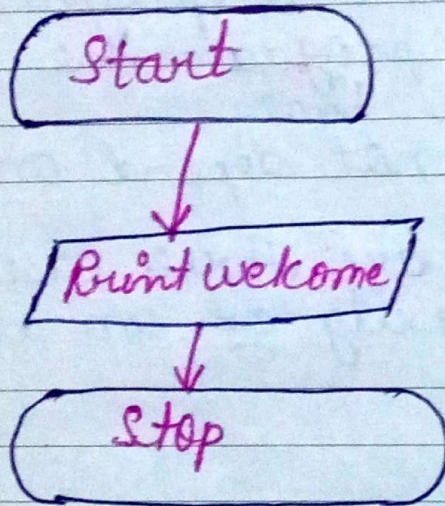 Start
Print welcome
Stop